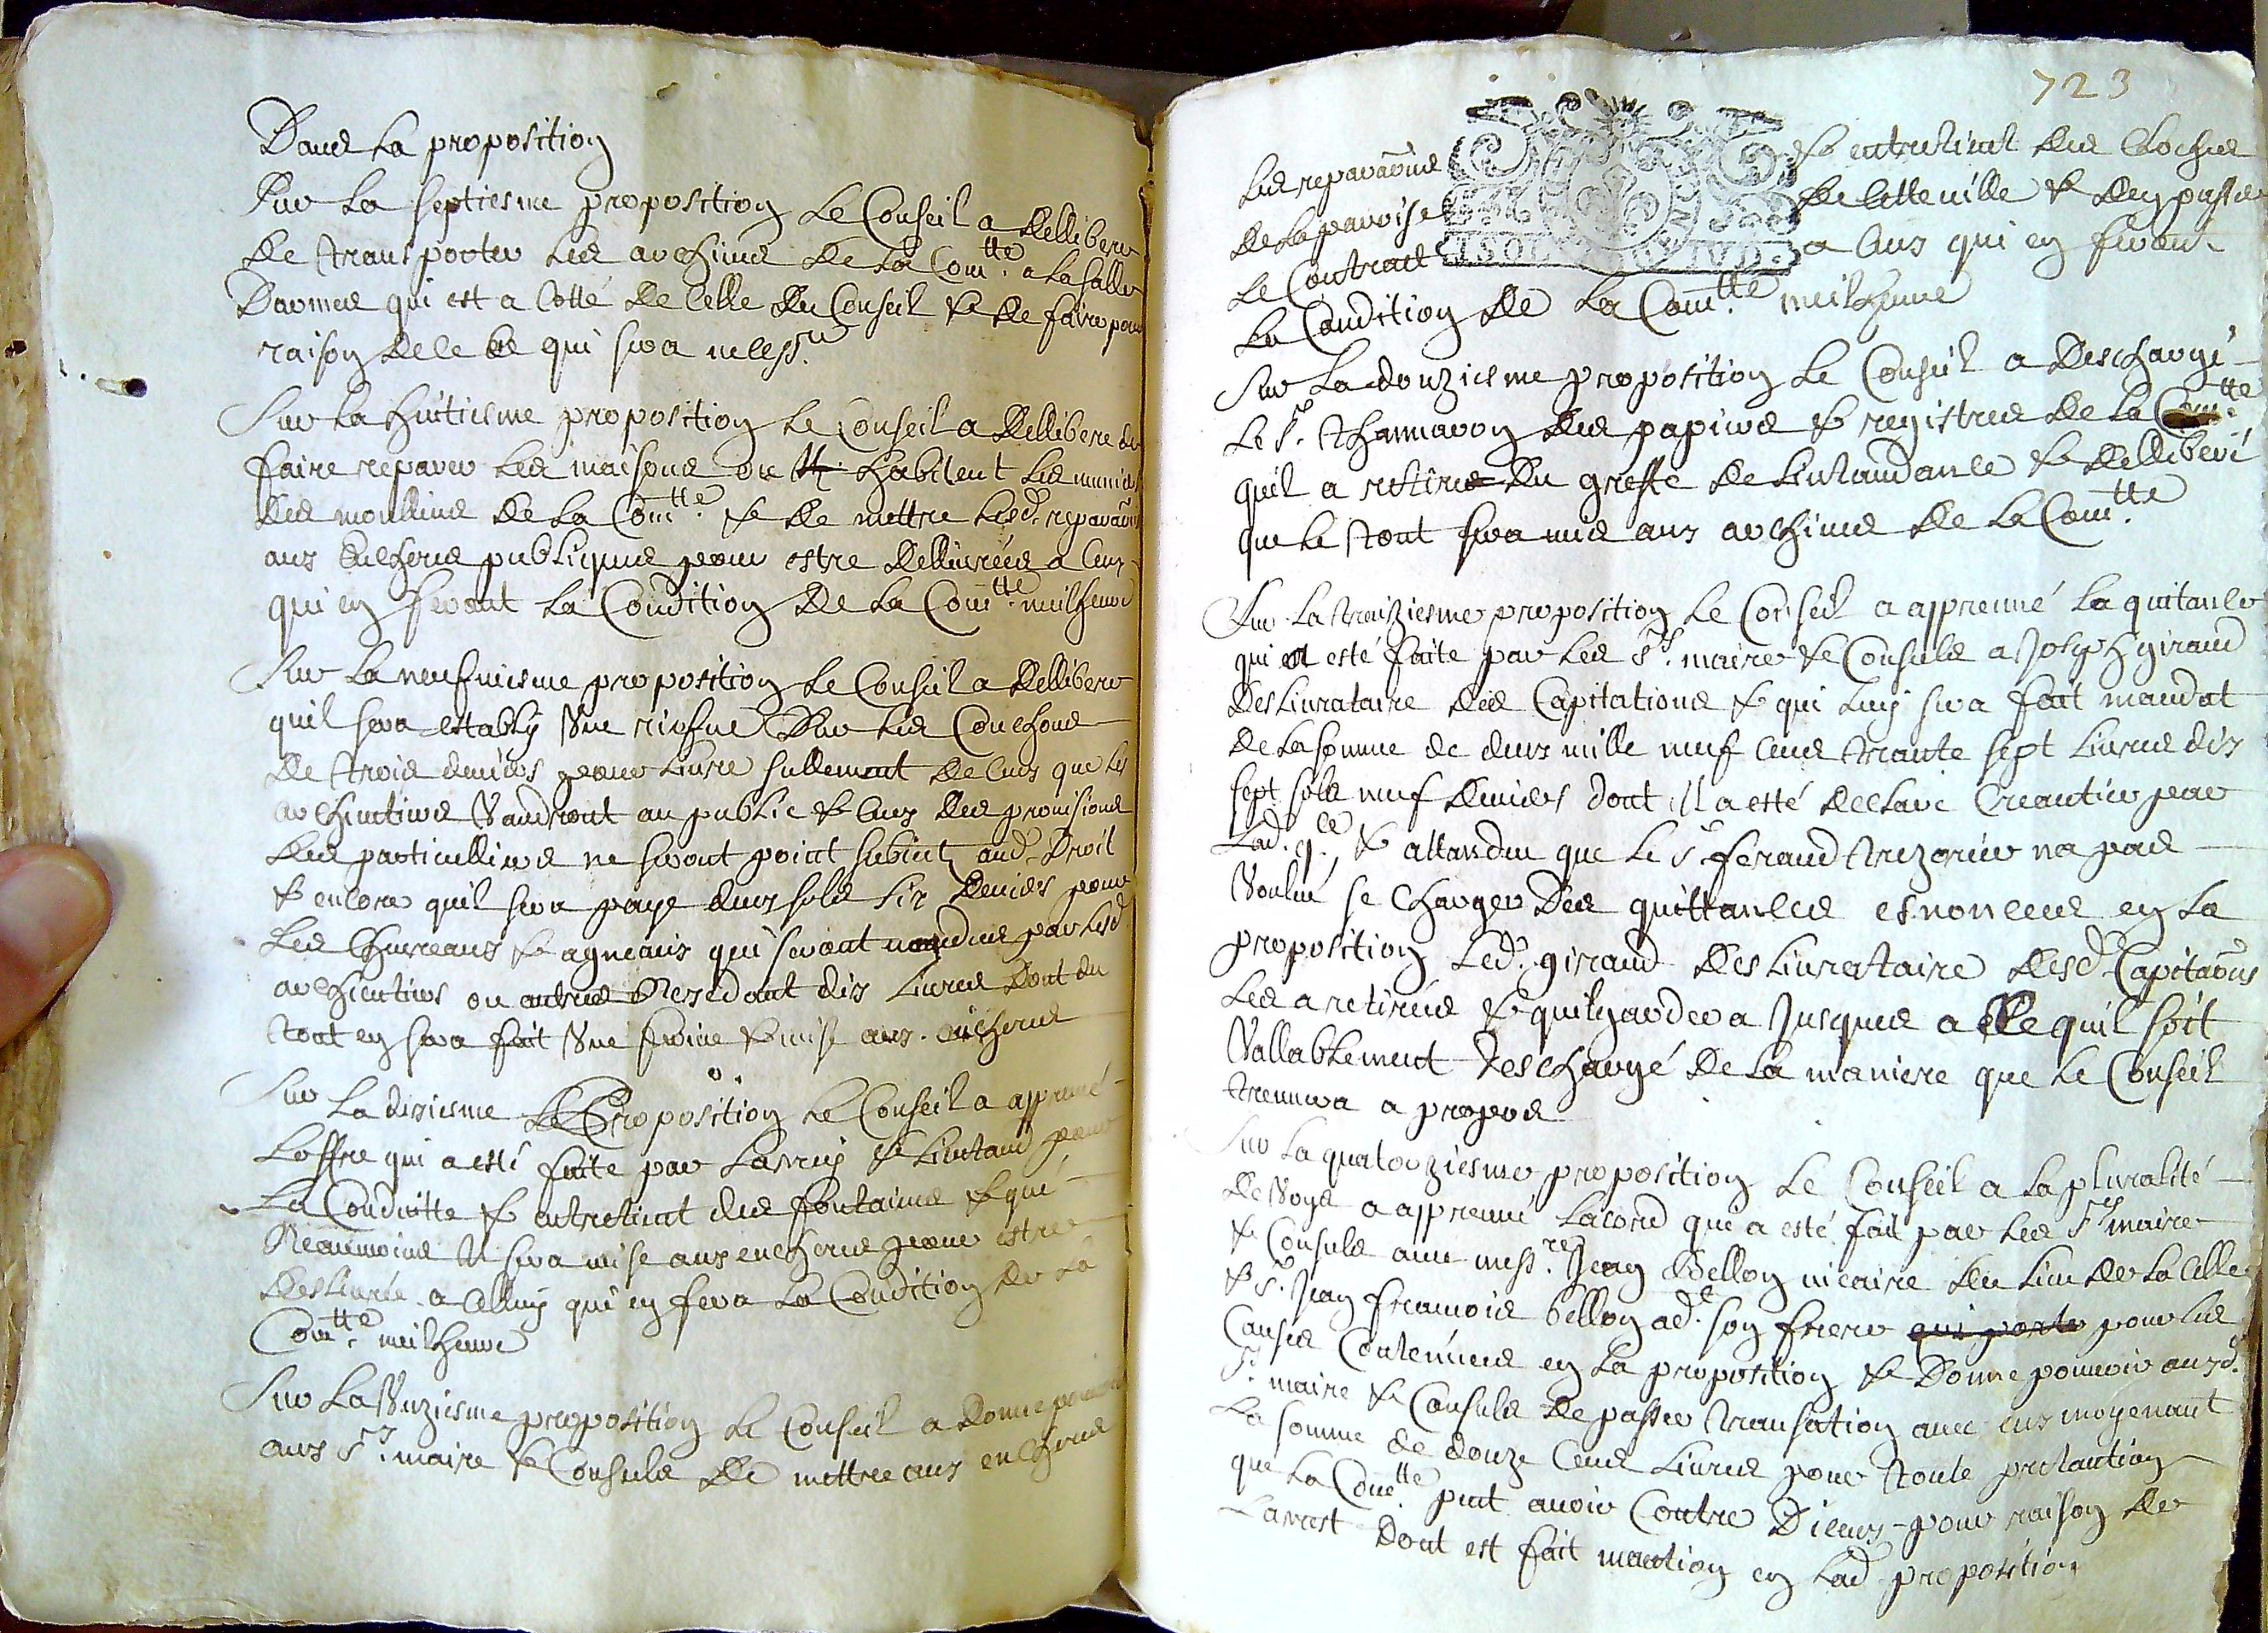 Dans la proposition
Sur la septiesme proposition le Conseil a delliberer
de transporter les archives de la Com.tte a la salle
Darmes qui est a Cotté de Celle du Conseil & de faire pour
raison de ce qui sera necess.re
Sur la huitiesme proposition le Conseil a delliberé de
faire reparer les maisons ou habitent les muniers
des moullins de la Com.tte & de mettre lesd. reparaõns
aux Encheres publiques pour estre dellivrées a Ceux
qui en feront la Condition de la Com.tte meilheure
Sur la neufviesme proposition le Conseil a delliberer
quil sera estably Vne rirfve Sur les Couchons
de trois deniers pour Livre sullement de Ceux que les
Vandront au public & Ceux des provisions
des particulliers ne seront point subiect aud. Droit
& encore quil sera paye deux sols six deniers pour
les Chevreaux & agneaux qui seront vandus par lesd.
ou autres Resedant dix Livres dont du
tout en sera fait Vne ferme & mise aux encheres
Sur la dixiesme Proposition le Conseil a appreuvé
Loffre qui a esté faite par Laurens & Lieutaud pour
la Conduitte & entretient des fontaines & que
Neaumoins Il sera mise aux encheres pour estre
deslivrée a Celluy qui en fera la Condition de la
Com.tte meilheure
Sur la Vnziesme proposition le Conseil a donné pouvoir
aux S.rs maire & Consuls de mettre aux encheres
723
les reparaõns & entretient des Cloches
de la parroisse de Cette ville & den passer
le Contract a Ceux qui en feront
la Condition de la Com.tte meilheure
Sur la douziesme proposition le Conseil a deschargé
le S.r Thammaron des papiers & registres de la Com.tte
quil a retirés du greffe de Lintandance & delliberé
que le tout sera mis aux archives de la Com.tte
Sur la treiziesme proposition le Conseil a appreuvé la quitance
qui a esté faite par les S.rs maire & Consuls a Joseph giraud
deslivrataire des Capitations & qui luy sera fait mandat
de la somme de deux mille neuf Cens trante sept Livres dix
sept sols neuf deniers dont il a esté declaré Creantier par
Lad. q.ce & attandeu que le S.r feraud trezorier na pas
Voullu se Charger des quittances esnoncees en la
proposition led. giraud deslivrataire desd. Capitaõns
les a retirées & quil gardera Jusques a Ce quil soit
Vallablement deschargé de la maniere que le Conseil
treuvera a propos
Sur la quatorziesme proposition le Conseil a la pluralité
de Voys a appreuvé lacord qui a esté fait par les S.rs maire
& Consuls avec mess.re Jean Bellon vicaire du Lieu de la Celle
& S.r Jean francois bellon ad.t son frere qui porte pour les
Causes Contenues en la proposition & Donne pouvoir auxd.
S.rs maire & Consuls de passer transation avec eux moyenant
la somme de douze Cens Livres pour toute pretantion
que la Com.tte put avoir Contre D'iceux pour raison de
Larrest dont est fait mantion en lad. proposition